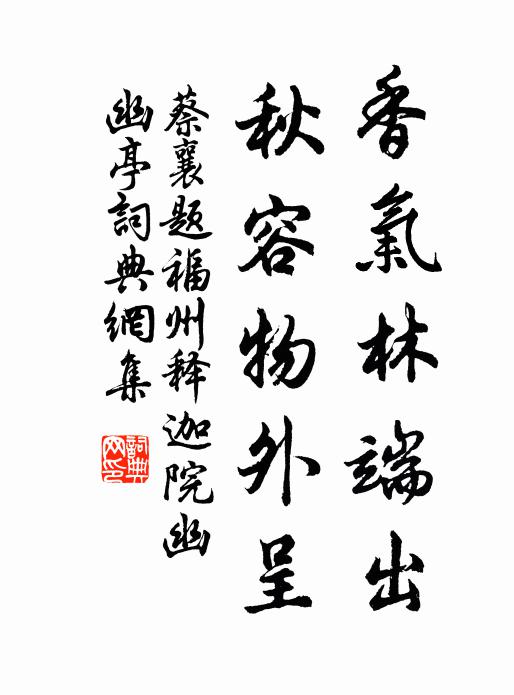 香氣林端出
秋容物外呈
蔡襄题福州释迦院幽
幽亭詞典網集
詞典網印